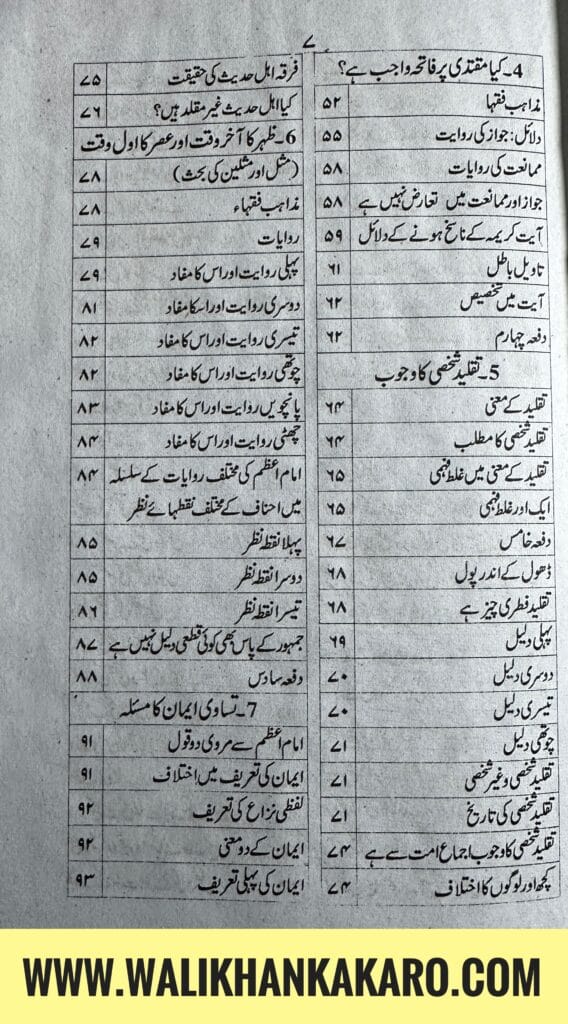 ۷
4۔کیا مقتدی پر فاتحہ واجب ہے؟
مذاہب فقہا ۵۲
دلائل: جواز کی روایت ۵۵
ممانعت کی روایات ۵۸
جواز اور ممانعت میں تعارض نہیں ہے ۵۸
آیت کریمہ کے ناسخ ہونے کے دلائل ۵۹
تاویل باطل ۶۱
آیت میں تخصیص ۶۲
دفعہ چہارم ۶۲
5۔تقلید شخصی کا وجوب
تقلید کے معنی ۶۴
تقلید شخصی کا مطلب ۶۴
تقلید کے معنی میں غلط فہمی ۶۵
ایک اور غلط فہمی ۶۵
دفعہ خامس ۶۷
ڈھول کے اندر پول ۶۸
تقلید فطری چیز ہے ۶۸
پہلی دلیل ۶۹
دوسری دلیل ۷۰
تیسری دلیل ۷۰
چوتھی دلیل ۷۱
تقلید شخصی و غیر شخصی ۷۱
تقلید شخصی کی تاریخ ۷۱
تقلید شخصی کا وجوب اجماع امت سے ہے ۷۴
کچھ اور لوگوں کا اختلاف ۷۴
فرقہ اہل حدیث کی حقیقت ۷۵
کیا اہل حدیث غیر مقلد ہیں؟ ۷۶
6۔ظہر کا آخر وقت اور عصر کا اول وقت
(مثل اور مثلین کی بحث) ۷۸
مذاہب فقہاء ۷۸
روایات ۷۹
پہلی روایت اور اس کا مفاد ۷۹
دوسری روایت اور اسکا مفاد ۸۱
تیسری روایت اور اس کا مفاد ۸۲
چوتھی روایت اور اس کا مفاد ۸۲
پانچویں روایت اور اس کا مفاد ۸۳
چھٹی روایت اور اس کا مفاد ۸۴
امام اعظم کی مختلف روایات کے سلسلہ ۸۴
میں احناف کے مختلف نقطہائے نظر
پہلا نقطہ نظر ۸۵
دوسرا نقطہ نظر ۸۵
تیسرا نقطہ نظر ۸۶
جمہور کے پاس بھی کوئی قطعی دلیل نہیں ہے ۸۷
دفعہ سادس ۸۸
7۔تساوی ایمان کا مسئلہ
امام اعظم سے مروی دو قول ۹۱
ایمان کی تعریف میں اختلاف ۹۱
لفظی نزاع کی تعریف ۹۲
ایمان کے دو معنی ۹۲
ایمان کی پہلی تعریف ۹۳
WWW.WALIKHANKAKARO.COM